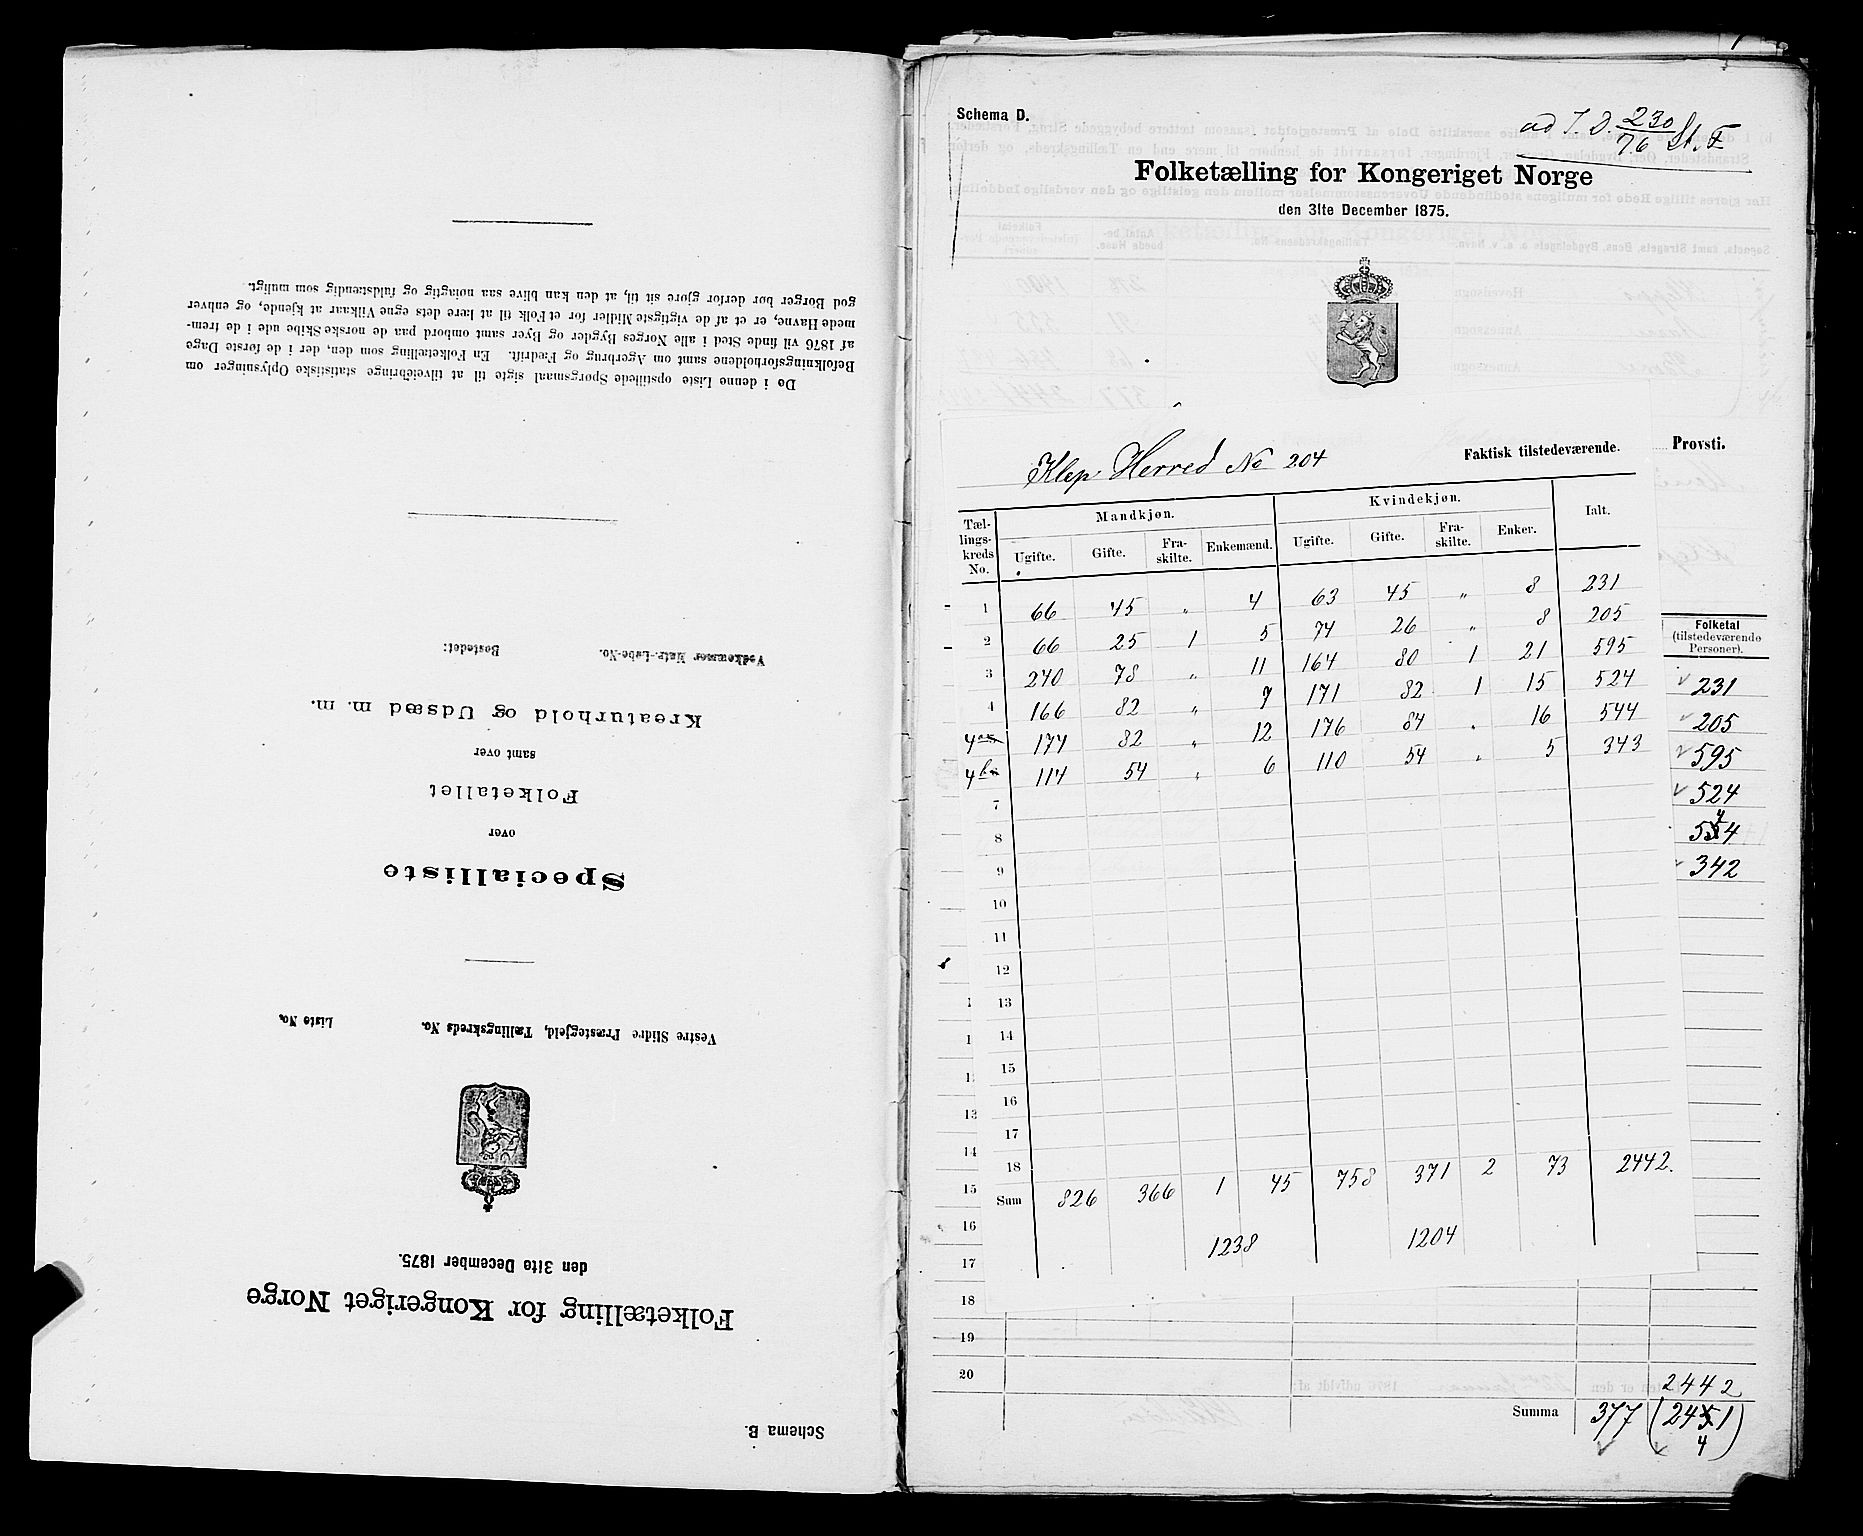 Schema B.
Folketælling for Kongeriget Norge
den 31te December 1875.
Vestre Slidre Præstegjeld, Tællingskreds No. Liste No.
Specialliste
over
Folketallet
samt over
Kreaturhold og Udsæd m. m.
Vedkommer Matr.-Løbe-No. Bostedet:
De i denne Liste opstillede Spørgsmaal sigte til at tilveiebringe statistiske Oplysninger om
Befolkningsforholdene samt om Agerbrug og Fædrift. En Folketælling som den, der i de første Dage
af 1876 vil finde Sted i alle Norges Bygder og Byer samt ombord paa de norske Skibe ude i de frem-
mede Havne, er et af de vigtigste Midler for et Folk til at lære dets egne Vilkaar at kjende, og enhver
god Borger bør derfor gjøre sit til, at den kan blive saa nøiagtig og fuldstændig som muligt.
Schema D.
ad J. D. 230/76 St. F
Folketælling for Kongeriget Norge
den 31te December 1875.
Provsti.
Klep Herred No 204 Faktisk tilstedeværende.
Tæl-lings-kreds No. Mandkjøn. Kvindekjøn. Ialt.
Ugifte. Gifte. Fra-skilte. Enkemænd. Ugifte. Gifte. Fra-skilte. Enker.
1 66 45 „ 4 63 45 „ 8 231
2 66 25 1 5 74 26 „ 8 205
3 240 78 „ 11 164 80 1 21 595
4 166 82 „ 7 171 82 1 15 524
4a 174 82 „ 12 176 84 „ 16 544
4b 114 54 „ 6 110 54 „ 5 343
7
8
9
10
11
12
13
14
15
16
17
18
Sum 826 366 1 45 758 371 2 73 2442.
1238 1204
Folketal
(tilstedeværende
Personer).
231
205
595
524
544
342
13
14
15
16
17
18
19
20
2442
Summa 377 (2451)
4